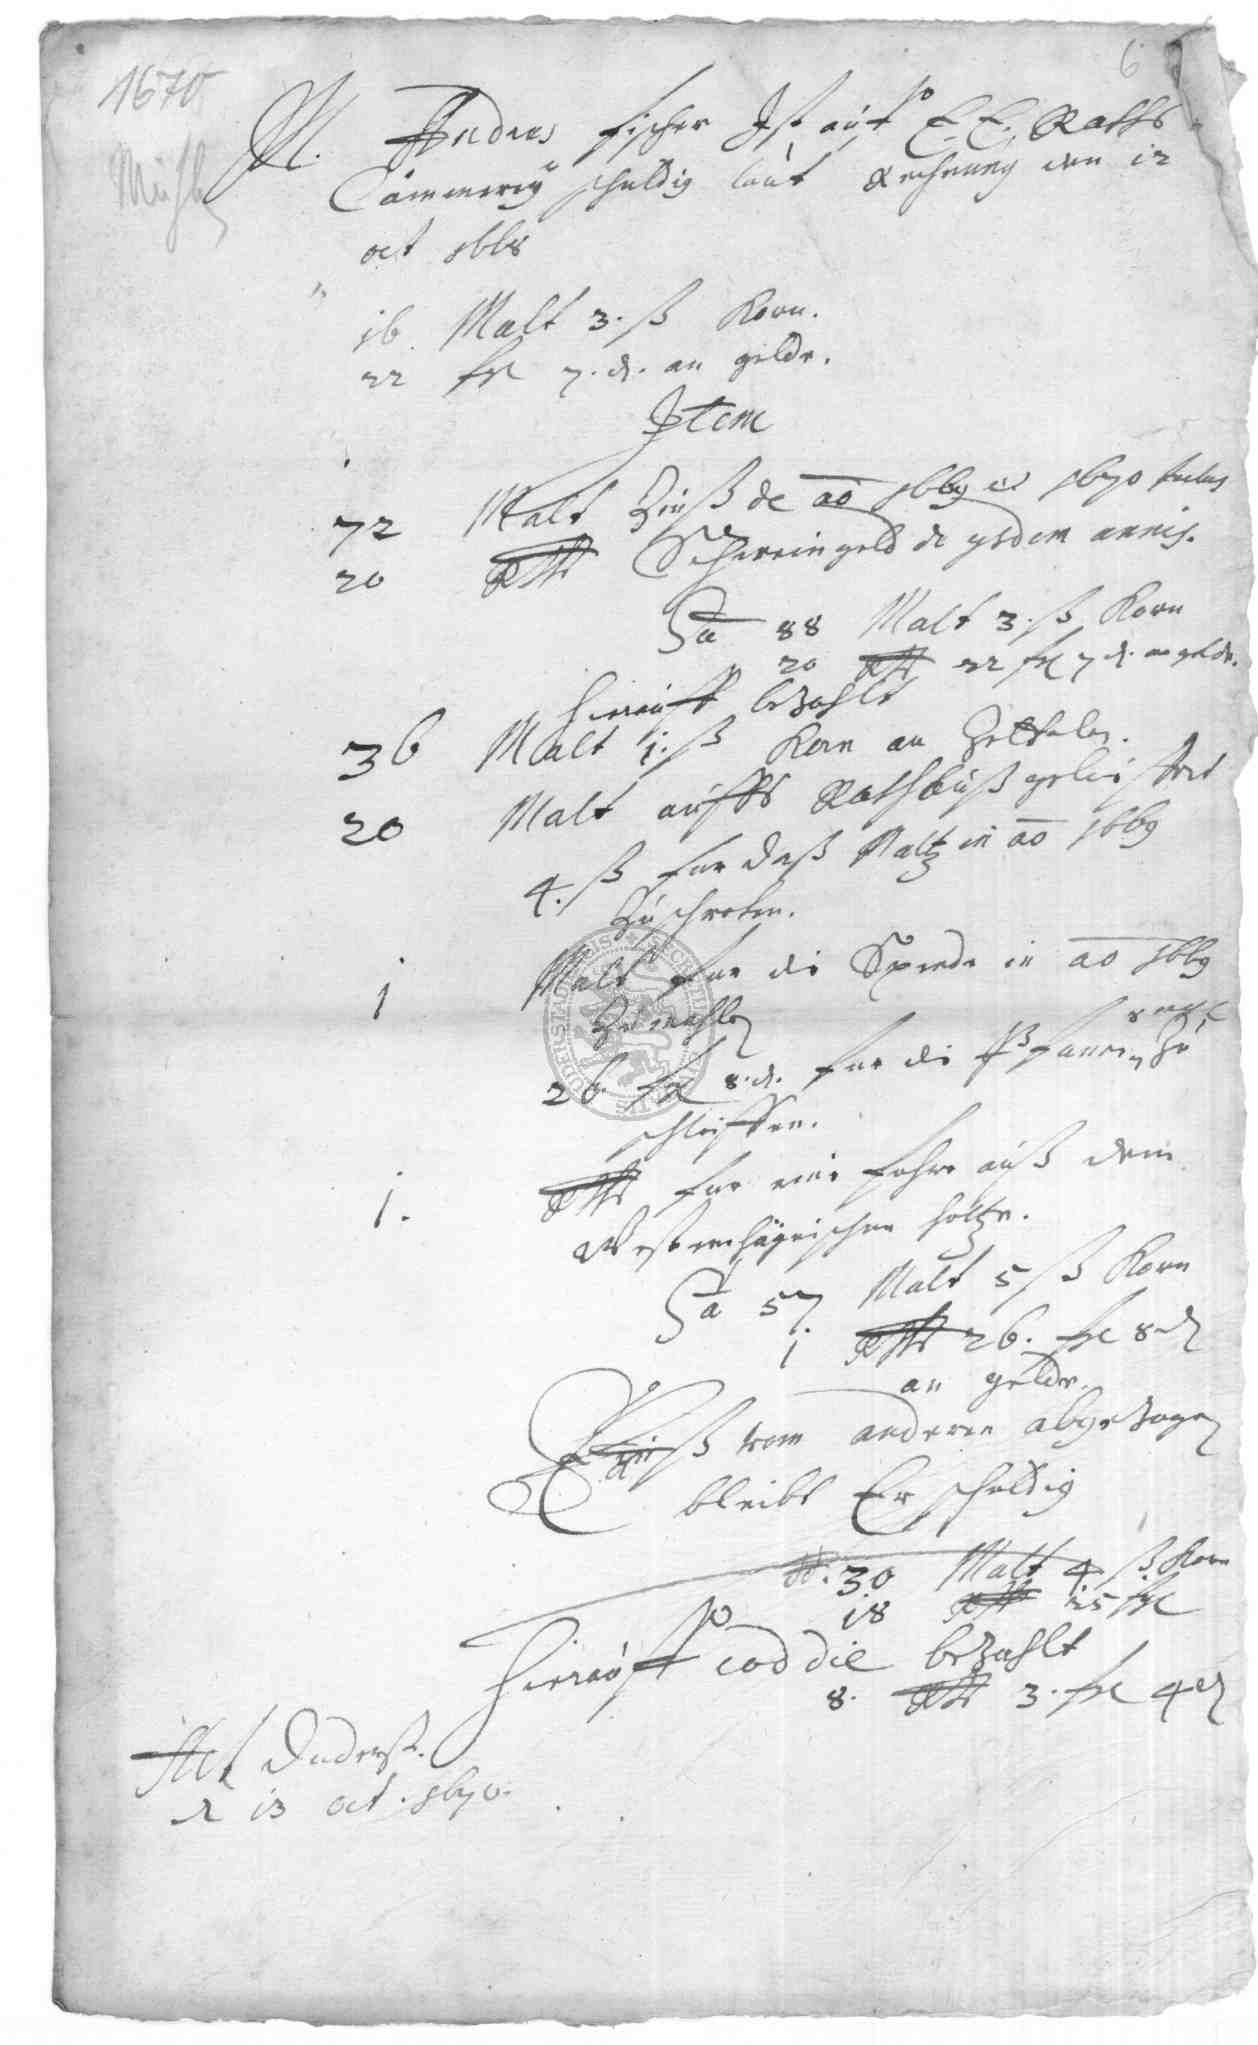 1670
6
M. Andres Fischer Ist auf E. E. Raths
Cämmerey schuldig laut Rechnung den 12
oct 1668
16 Malt 3. ß Korn.
22 fgl 7. d. an gelde.
Item
72 Malt Zinß de ao 1669 et 1670
20 Rthl Schweingeld de ysdem annis.
Sa 88 Malt 3. ß Korn
20 Rthl 22 fgl 7 d. an gelde.
Hierauff bezahlt
36 Malt 1. ß Korn an Zettelen.
20 Malt auffs Rathauß geliefert
4. ß fur daß Maltz in ao 1669
Zu schroten.
1 Malt fur die Spende in ao 1669
Zu mahlen
26. fgl 8. d. fur die Pfannen Zu
schleiffen.
1. Rthl fur eine fohre auß dem
Westerhägischen holtze.
Sa 57 Malt 5 ß Korn
1 Rthl 26. fgl 8 d
an gelde.
Dieß vom anderen abgezogen
bleibt Er schuldig
30 Malt 4 ß Korn
18 Rthl 25 fgl
Hierauff eod die bezahlt
8. Rthl 3. fgl 4 d
Act Duderst.
d 13 oct. 1670.